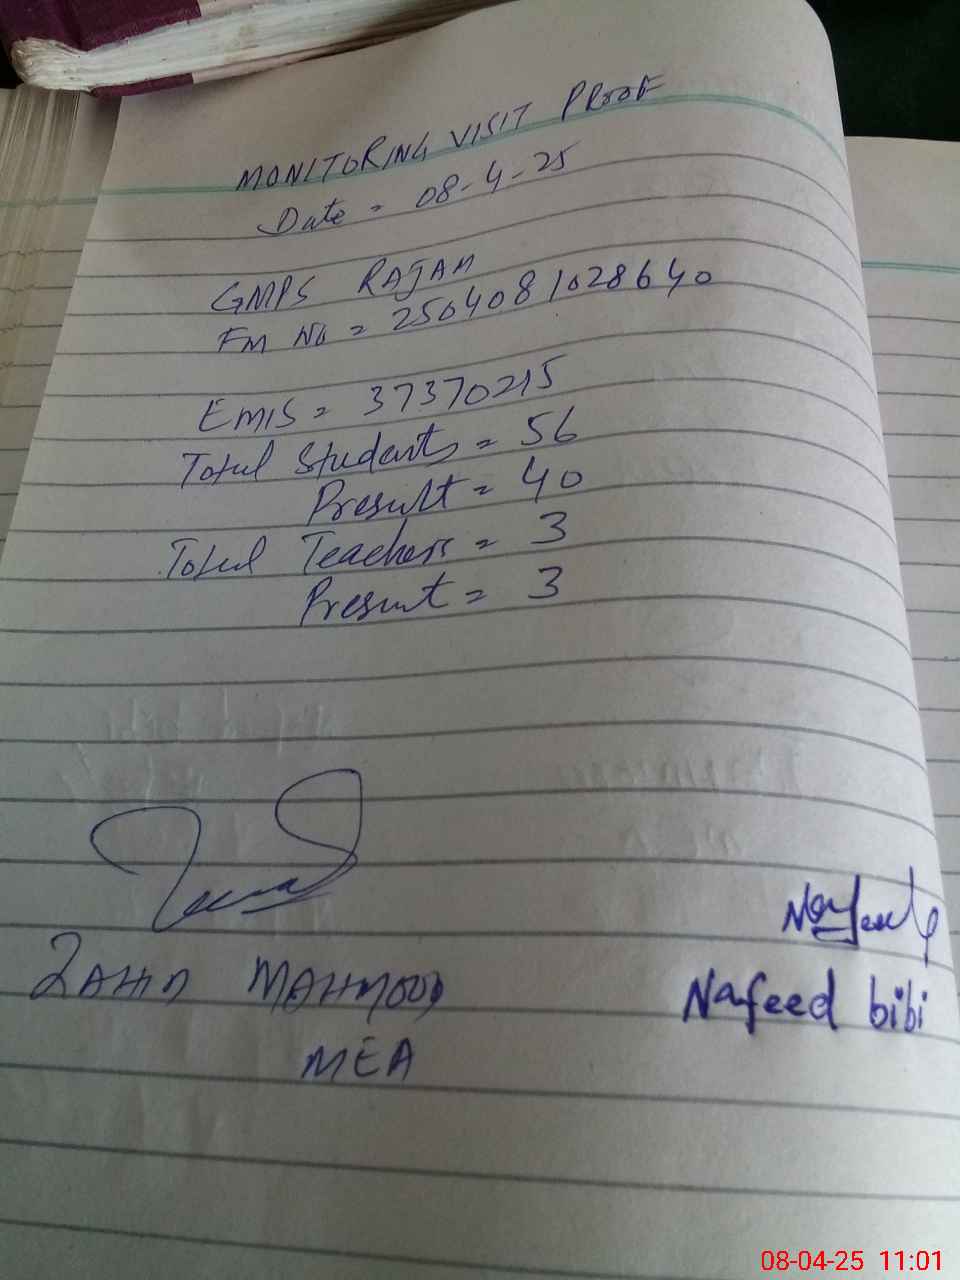 MONITORING VISIT PROOF
Date = 08-4-25
GMPS RAJAM
FM No = 2504081028640
EMIS = 37370215
Total Students = 56
Present = 40
Total Teachers = 3
Present = 3
Nafeed
ZAHID MAHMOOD
Nafeed bibi
MEA
08-04-25 11:01